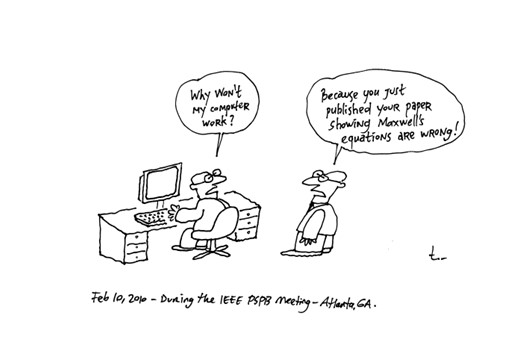 Why Won't
my computer
work?
Because you just
published your paper
showing Maxwell's
equations are wrong!
t...
Feb 10, 2010 - During the IEEE PSPB Meeting - Atlanta, GA.